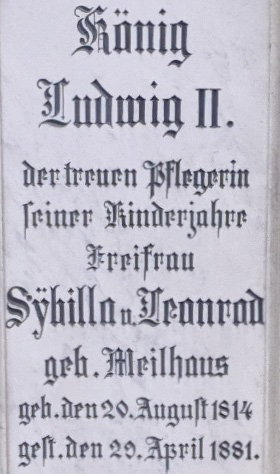 König
Ludwig II.
der treuen Pflegerin
seiner Kinderjahre
Freifrau
Sÿbilla v. Leonrod
geb. Meilhaus
geb. den 20. August 1814
gest. den 29. April 1881.